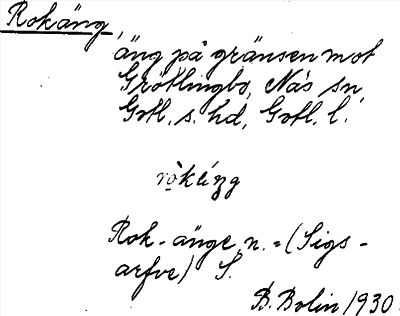 Rokäng,
äng på gränsen mot
Grötlingbo, Näs sn
Gotl. s. hd, Gotl. l.
Rok-änge, n. = (Sigs-
arfve) S.
B. Bolin 1930.